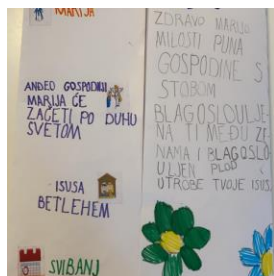 MARIJA
ANĐEO GOSPODNJI
MARIJA ĆE
ZAČETI PO DUHU
SVETOM
ISUSA
BETLEHEM
SVIBANJ
ZDRAVO MARIJO
MILOSTI PUNA
GOSPODINE S
STOBOM
BLAGOSLOVLJE-
NA TI MEĐU ŽE
NAMA I BLAGOSLO
VLJEN PLOD
UTROBE TVOJE ISUS.